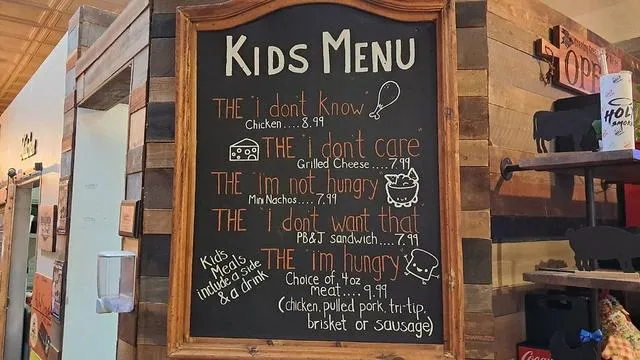 KIDS MENU
THE "i don't know"
Chicken....8.99
THE "i don't care
Grilled Cheese....7.99
THE "im not hungry"
Mini Nachos....7.99
THE "I don't want that"
PB&J sandwich....7.99
THE "im hungry"
Choice of 4oz
meat....9.99
(chicken, pulled pork, tri-tip,
brisket or sausage)
Kid's
Meals
include a side
& a drink
OPE
HOLY
SMOK